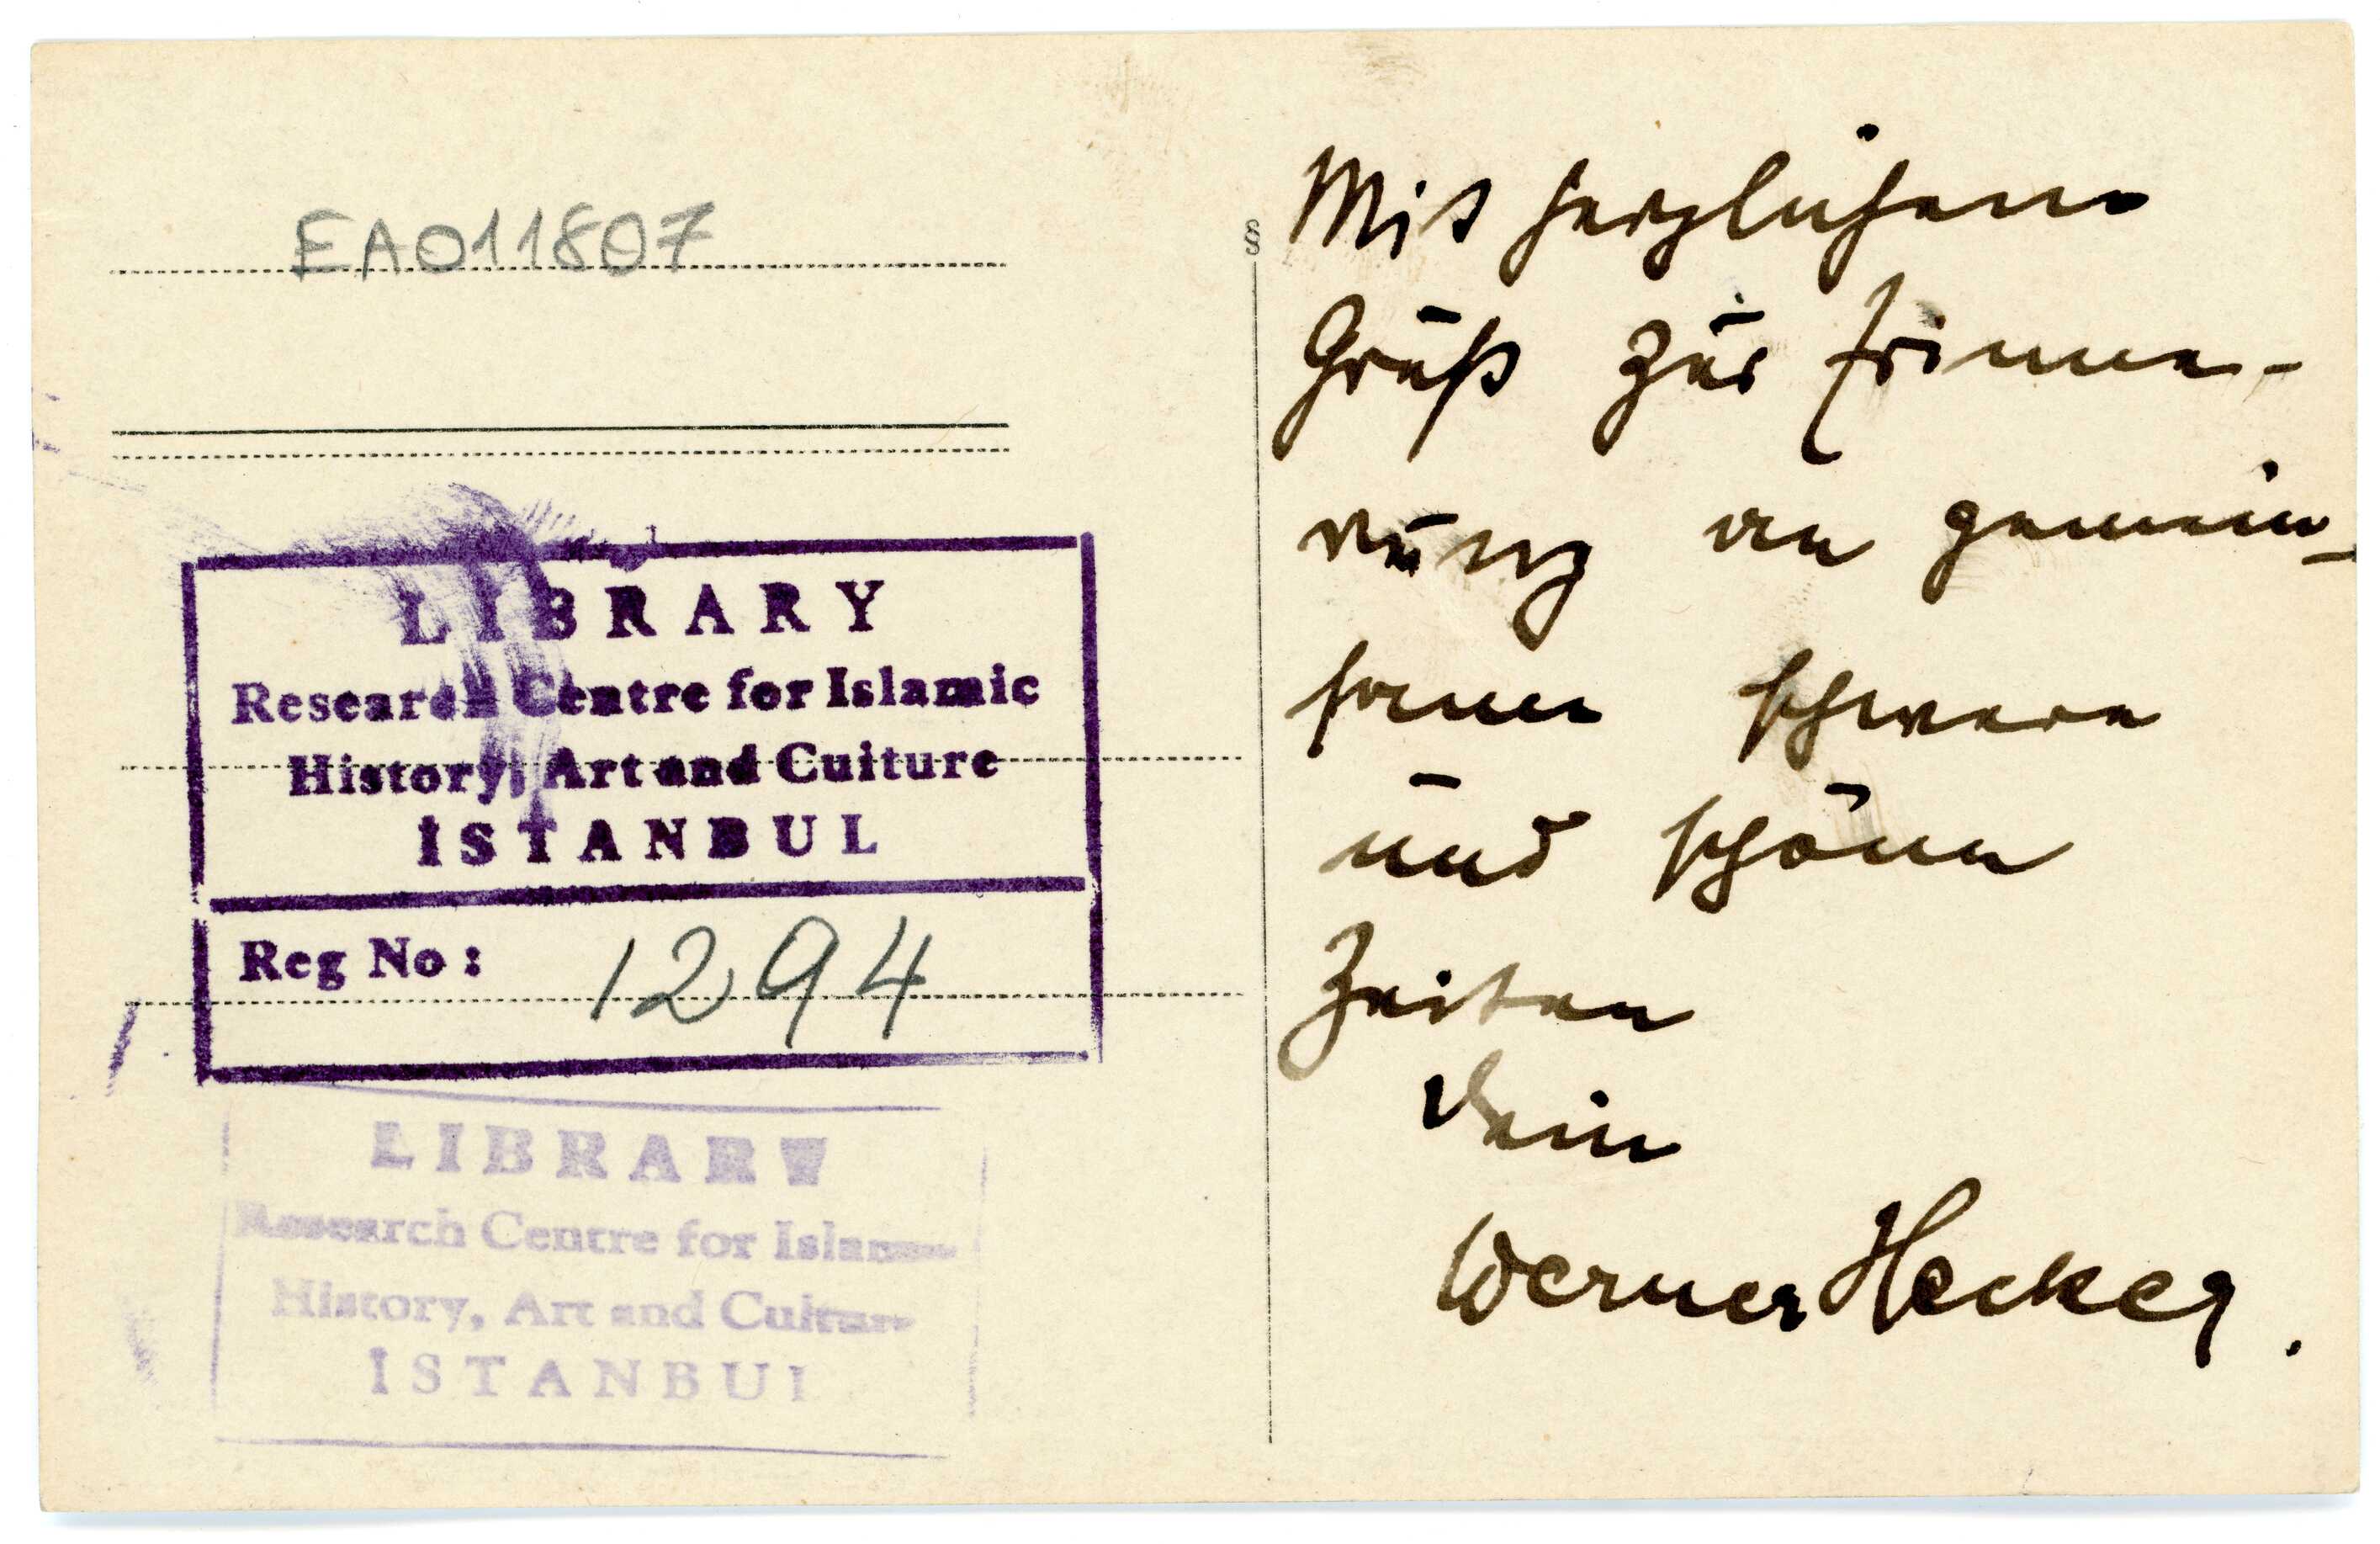 EA011807
LIBRARY
Research Centre for Islamic
History, Art and Culture
İSTANBUL
Reg No: 1294
LIBRARY
Research Centre for Islamic
History, Art and Culture
İSTANBUL
§
Mit herzlichem
Gruß zur Erinne-
rung an gemein-
same schwere
und schöne
Zeiten
Dein
Werner Hecker.